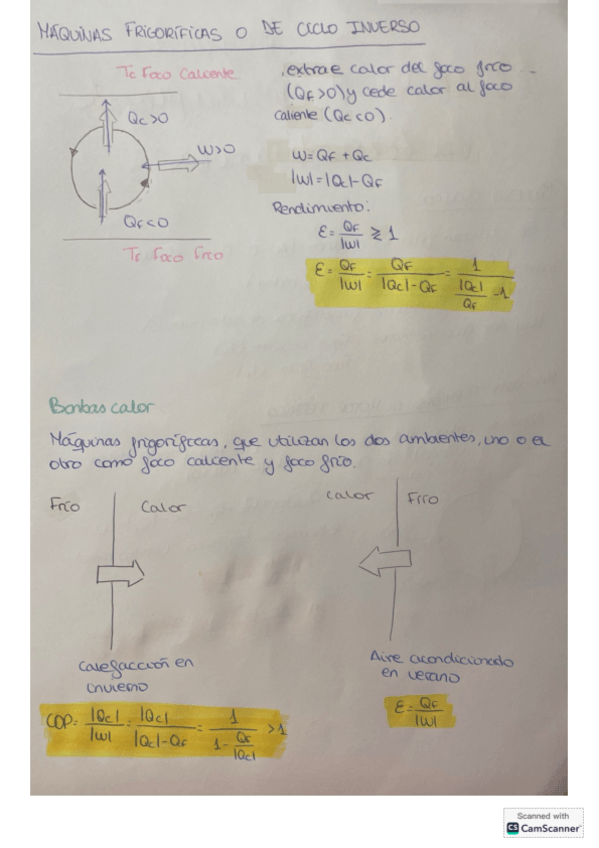 MÁQUINAS FRIGORÍFICAS O DE CICLO INVERSO
Tc Foco Caliente
Qc>0
W>0
QF<0
TF Foco Frío
. extrae calor del foco frío
(QF>0) y cede calor al foco
caliente (Qc<0).
W=QF+Qc
|W|=|Qc|-QF
Rendimiento:
ε=QF/|W| ≷ 1
ε=QF/|W|=QF/(|Qc|-QF)=1/(|Qc|/QF -1)
Bombas calor
Máquinas frigoríficas, que utilizan los dos ambientes, uno o el
otro como foco caliente y foco frío.
Frío
Calor
Calefacción en
invierno
COP=|Qc|/|W|=|Qc|/(|Qc|-QF)=1/(1-QF/|Qc|) >1
Calor
Frío
Aire acondicionado
en verano
ε=QF/|W|
Scanned with
CS CamScanner